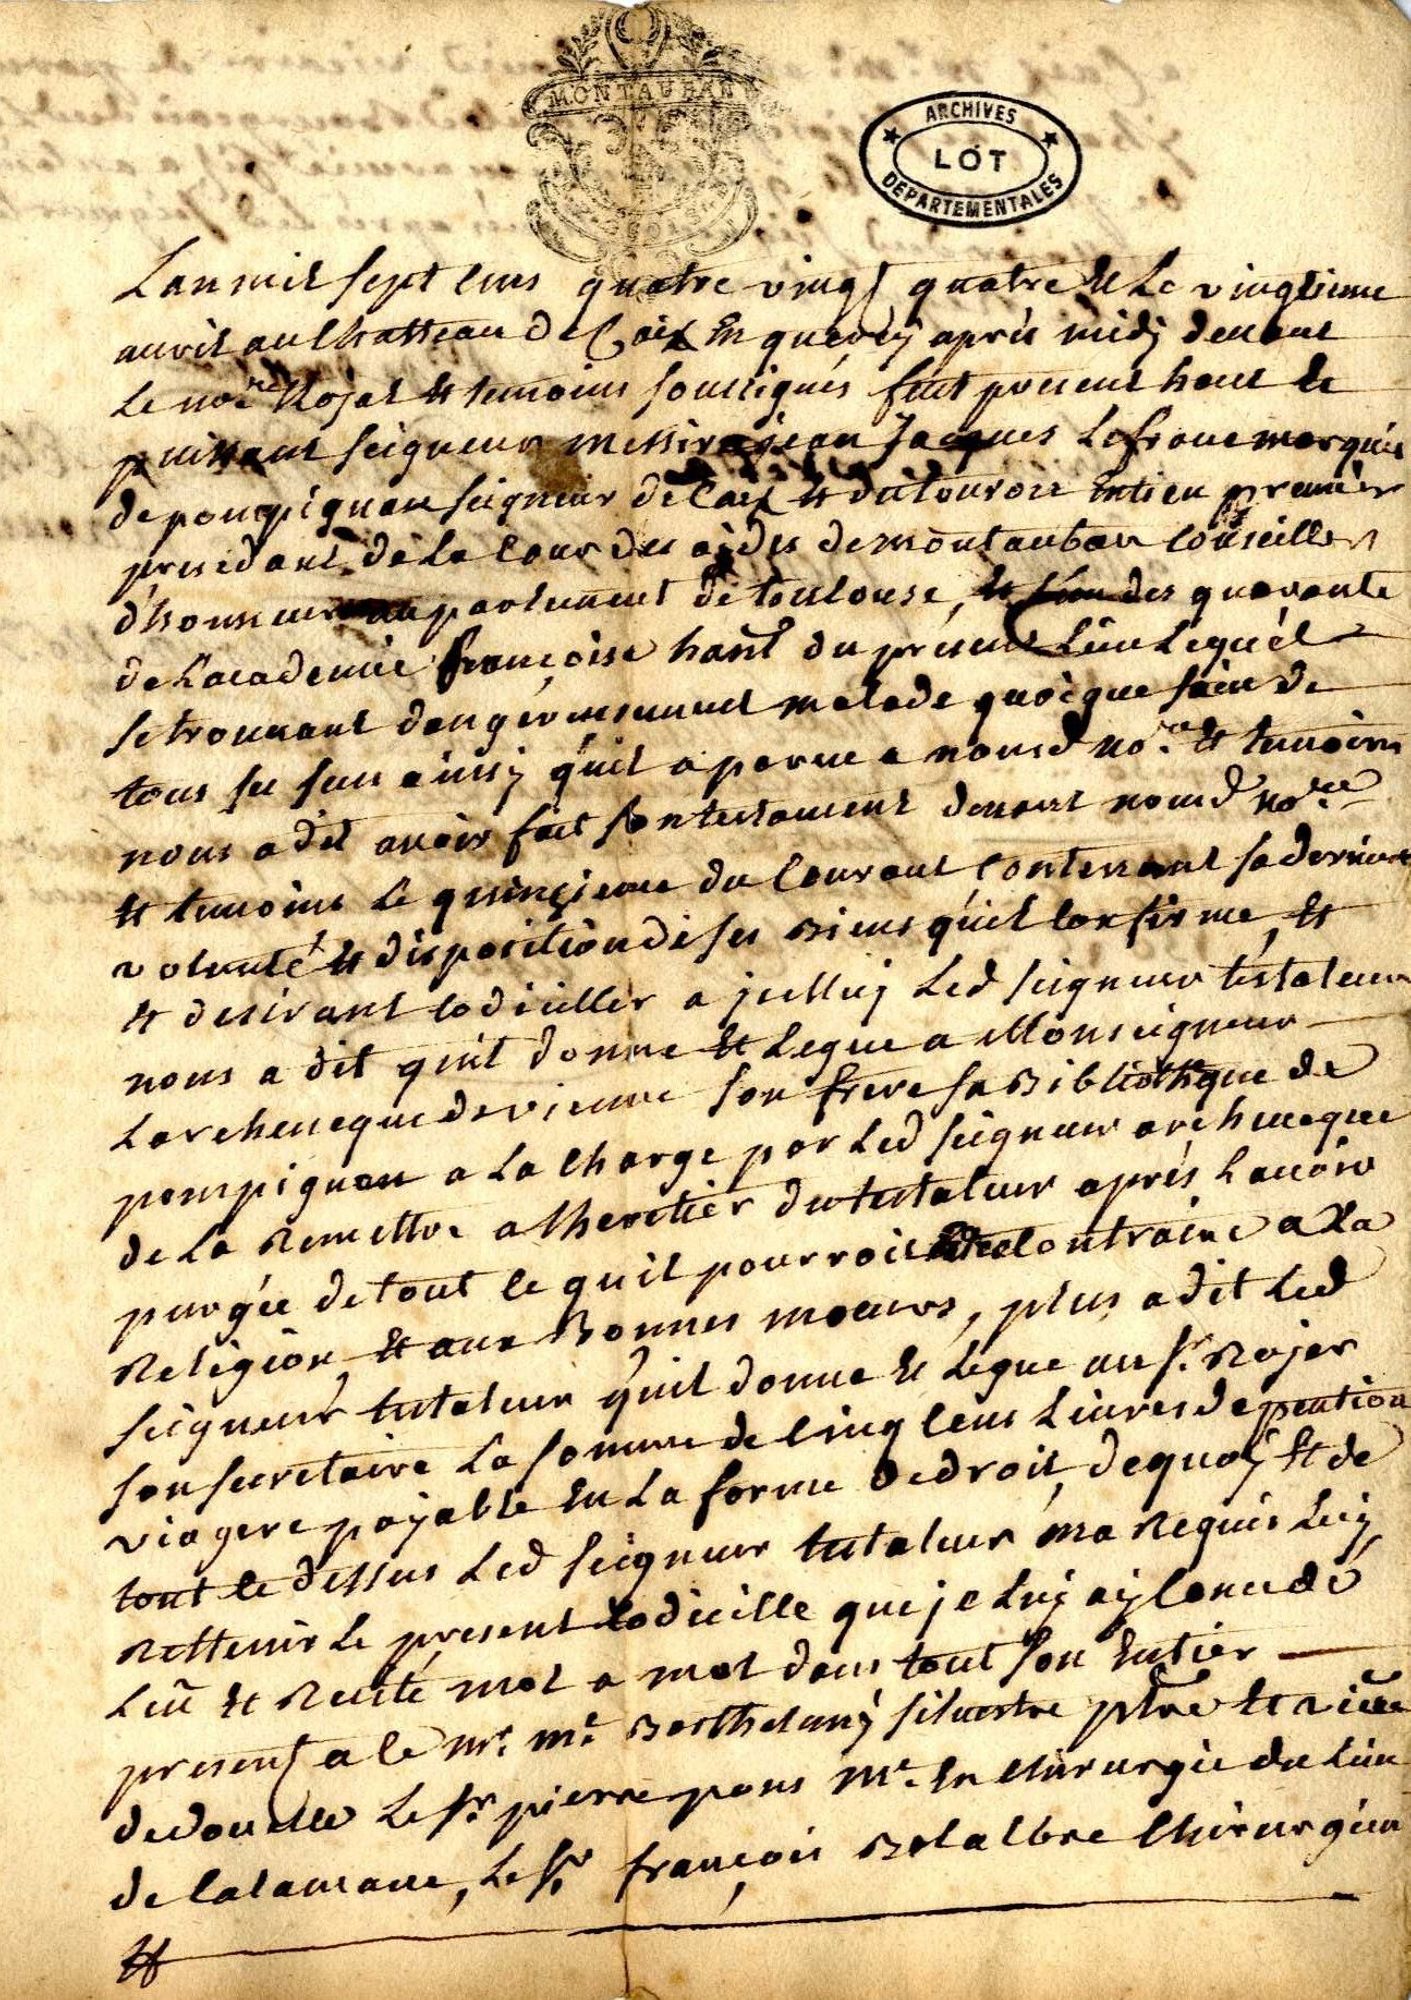 MONTAUBAN
2. SOLS
ARCHIVES
LOT
DEPARTEMENTALES
Lan mil sept cens quatre vingt quatre et le vingtieme
avril au chatteau de Caix en quercy apres midy devant
le no.re Royal et temoins soussignés fut present haut et
puissant seigneur messire jean Jacques Lefranc marquis
de pompignan seigneur de Caix et dutouron entien premier
presidant de la Cour des aydes de montauban conseiller
d'honneur au parlement de toulouse, et l'un des quarante
de L'academie françoise hant du présent Lieu Lequel
se trouvant dangereusement malade quoique sain de
tous ses sens ainsy quil a parue a nousd no.re et temoins
nous a dit avoir fait son testament devant nousd no.re
et temoins le quinzieme du Courant contenant sa derniere
volonté et disposition de ses Biens quil confirme, et
et desirant codiciller a jcelluy Led seigneur testateur
nous a dit quil donne et Legue a Monseigneur
Larcheveque de vienne son frere sa Bibliotheque de
pompignan a La charge par Led seigneur archeveque
de La Remettre a lheretier du testateur après L'avoir
purgée de tout ce quil pourroit contraire a La
Religion, et aux Bonnes moeurs, plus a dit Led
seigneur testateur quil donne et Légue au sr. Rojer
son secretaire La somme de cinq cens Livres de pention
viagere payable en La forme de droit, dequoy et de
tout ce dessus Led seigneur testateur ma Requis Luy
Rettenir Le present codicille que je luy ay concedé
Leu et Recité mot a mot dans tout son entier
presens a ce mr. me. Barthelemy silvestre ptre et vicre
de douelle Le sr. pierre pons me. en chirurgie du Lieu
de Calamane, Le sr. françois Belalbre Chirurgien
et